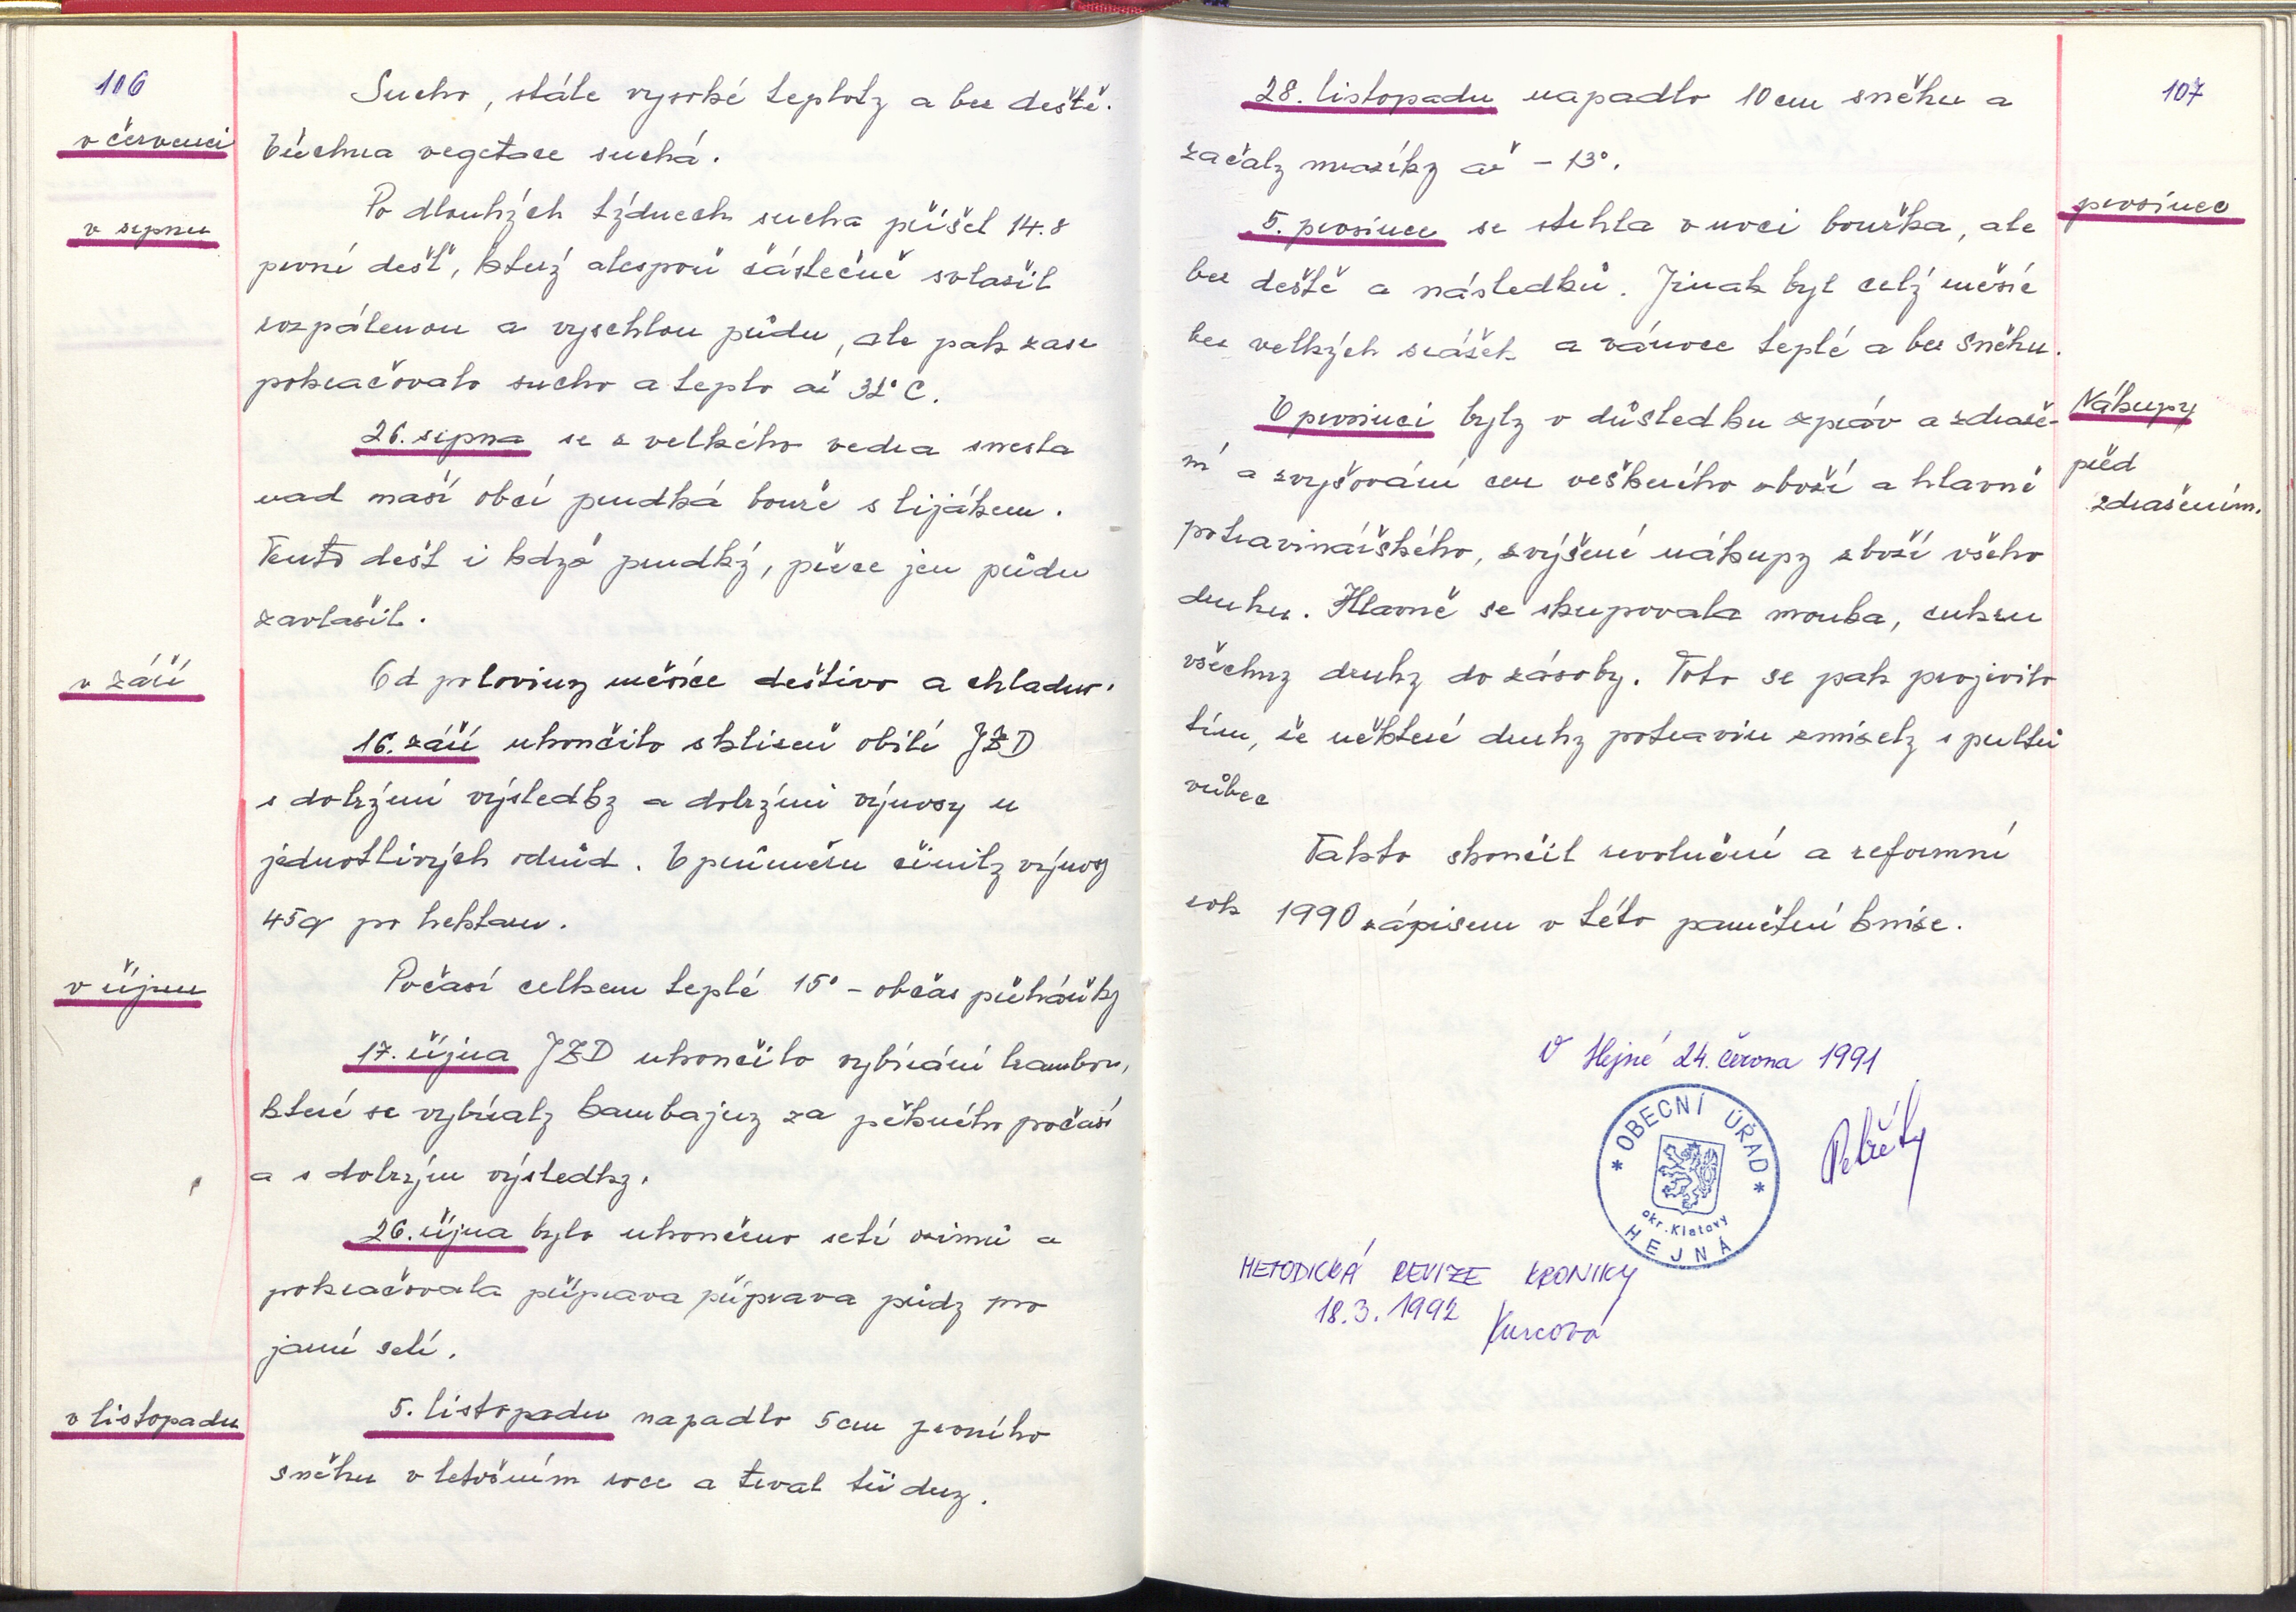 106
v červenci
Sucho, stále vysoké teploty a bez deště.
Všechna vegetace suchá.
v srpnu
Po dlouhých týdnech sucha přišel 14.8
první dešť, který alespoň částečně svlažil
rozpálenou a vyschlou půdu, ale pak zase
pokračovalo sucho a teplo až 32°C.
26. srpna se z velkého vedra snesla
nad naší obcí prudká bouře s lijákem.
Tento dešt i když prudký, přece jen půdu
zavlažil.
v září
Od poloviny měsíce deštivo a chladno.
16. září ukončilo sklizeň obilí JZD
s dobrými výsledky a dobrými výnosy u
jednotlivých odrůd. V průměru činily výnosy
45q po hektaru.
v říjnu
Počasí celkem teplé 15° - občas přeháňky
17. října JZD ukončilo vybírání brambor,
které se vybíraly kombajny za pěkného počasí
a s dobrým výsledky.
26. října bylo ukončeno setí ozimů a
pokračovala příprava příprava půdy pro
jarní setí.
v listopadu
5. listopadu napadlo 5cm prvního
sněhu v letošním roce a trval tři dny.
107
28. listopadu napadlo 10cm sněhu a
začaly mrazíky až -13°.
prosinec
5. prosince se strhla v noci bouřka, ale
bez deště a následků. Jinak byl celý měsíc
bez velkých srážek a vánoce teplé a bez sněhu.
Nákupy
před
zdražením.
V prosinci byly v důsledku zpráv a zdraže-
ní a zvyšování cen veškerého zboží a hlavně
potravinářského, zvýšené nákupy zboží všeho
druhu. Hlavně se skupovala mouka, cukru
všechny druhy do zásoby. Toto se pak projevilo
tím, že některé druhy potravin zmizely s pultů
vůbec
Takto skončil revoluční a reformní
rok 1990 zápisem v této pamětní knize.
V Hejné 24. června 1991
* OBECNÍ ÚŘAD *
okr. Klatovy
HEJNÁ
METODICKÁ REVIZE KRONIKY
18.3.1992